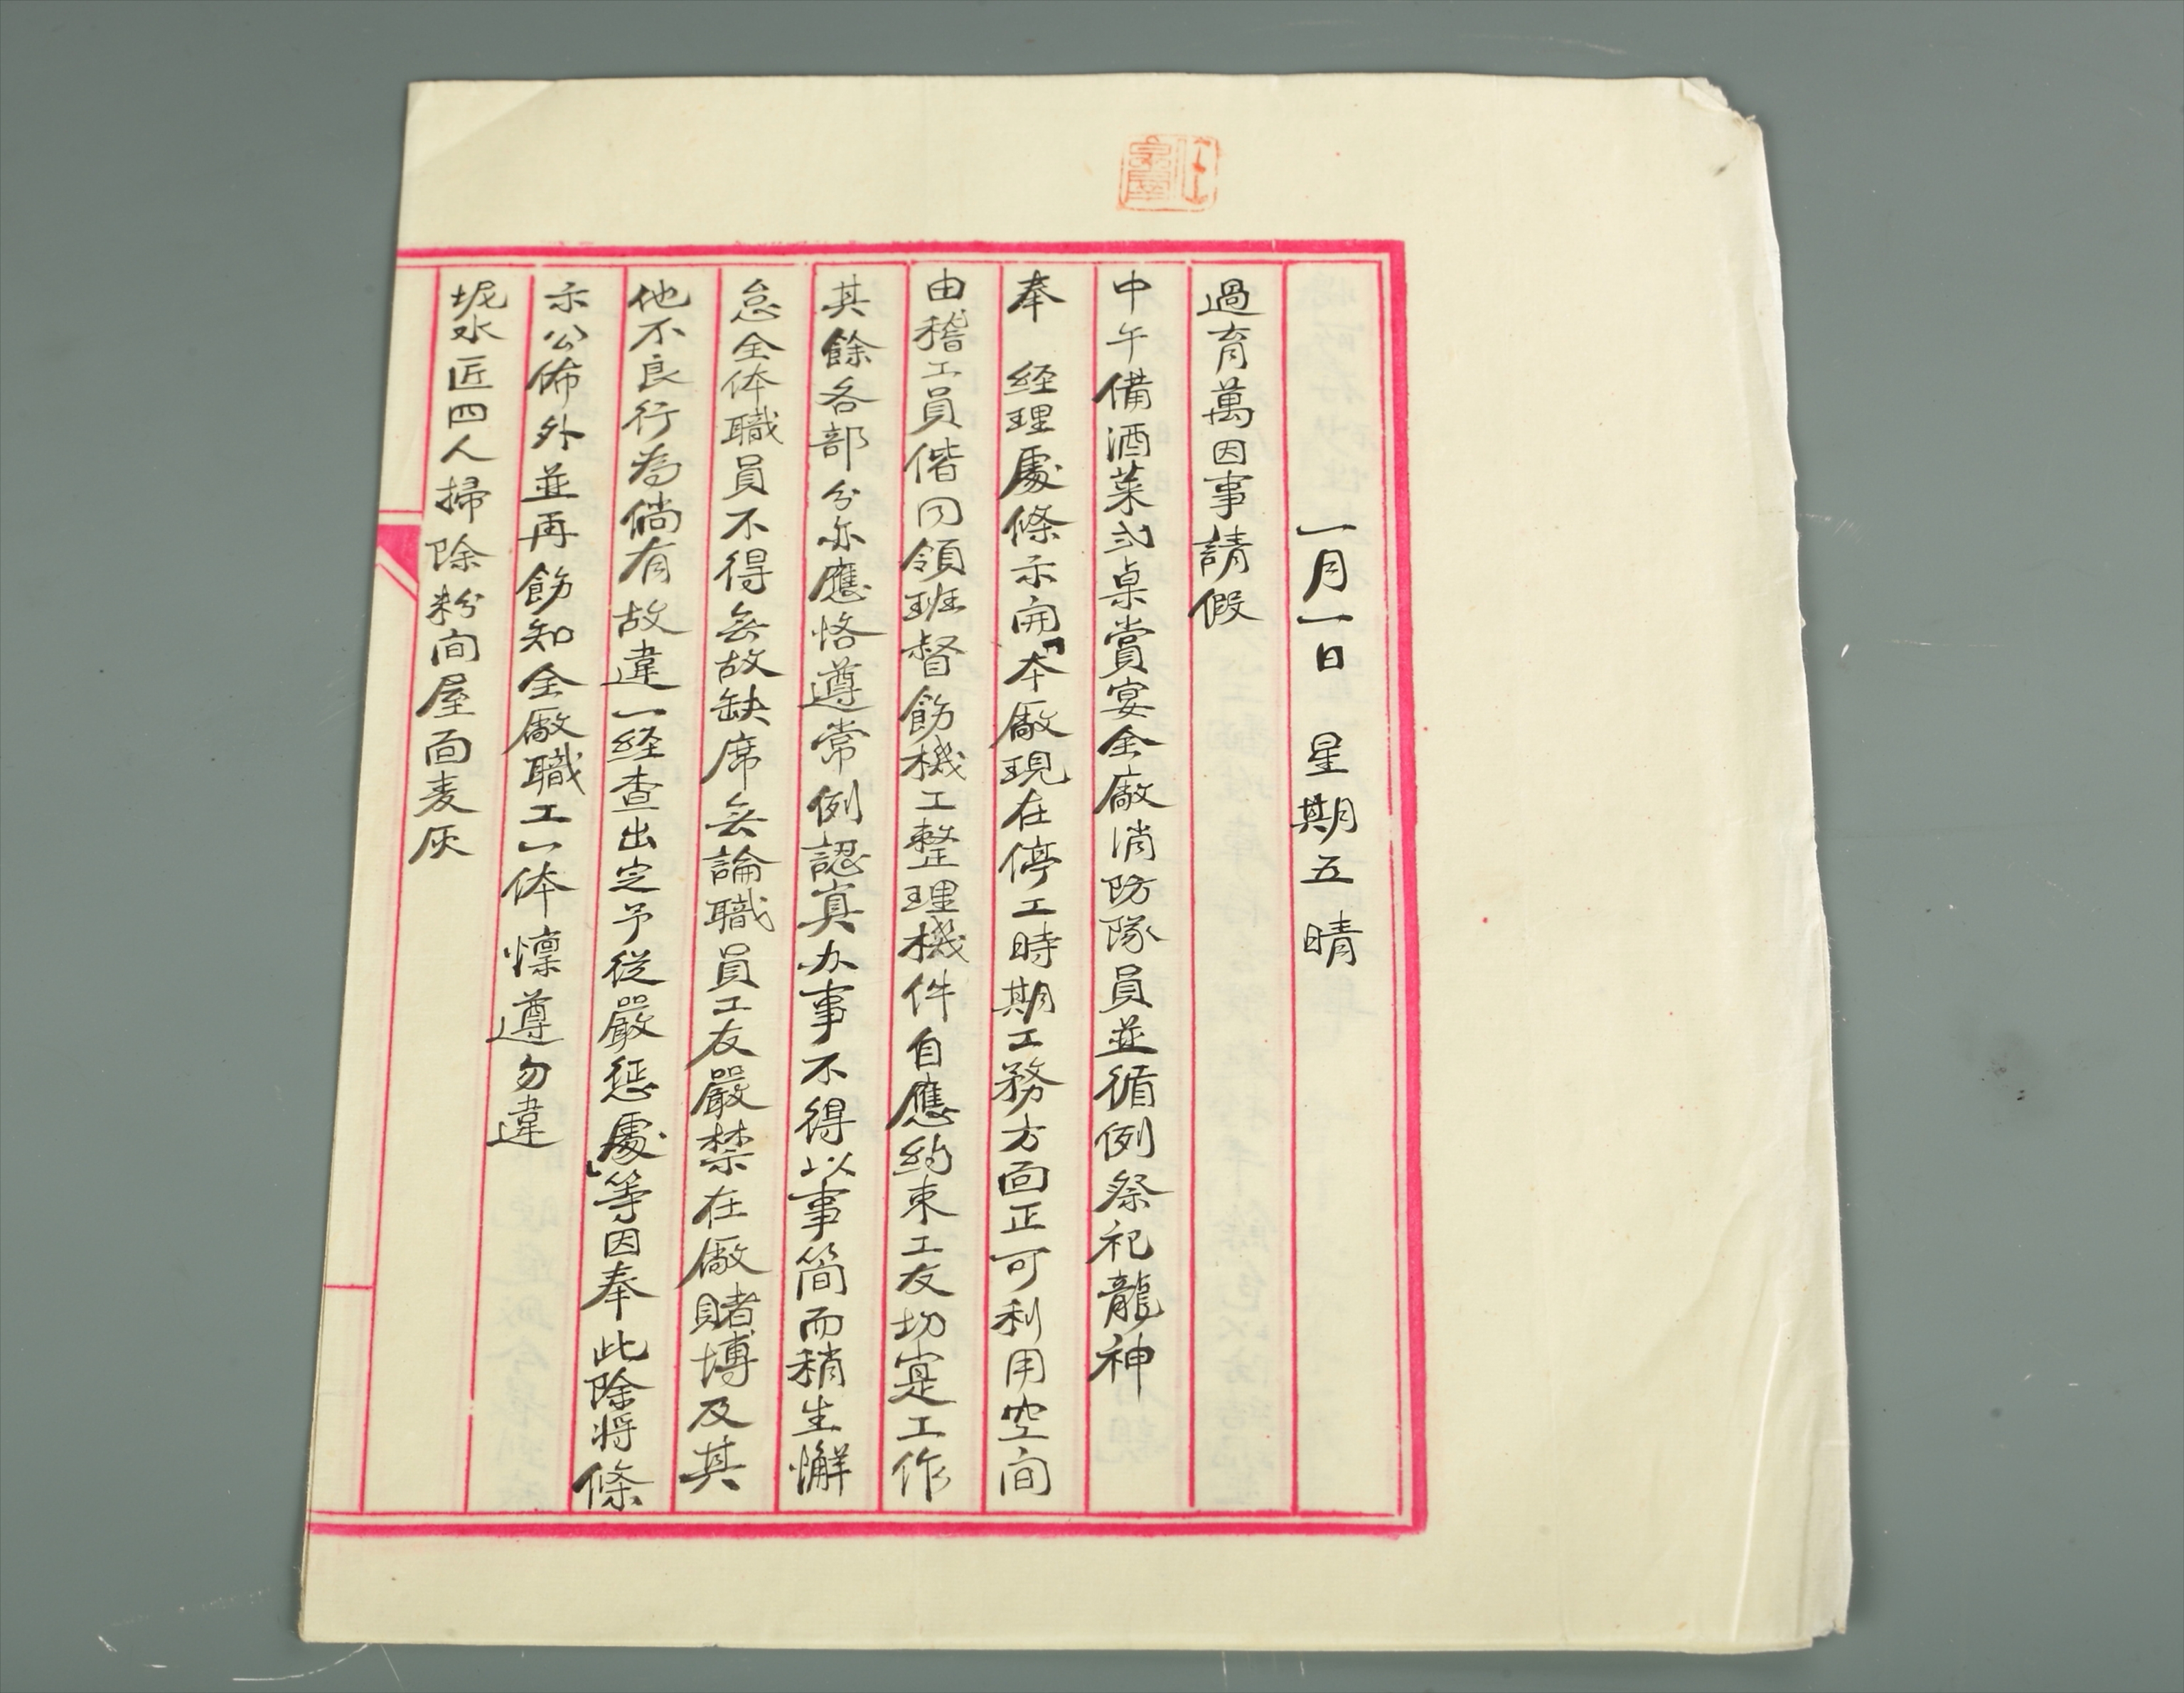 一月一日 星期五 晴
過育萬因事請假
中午備酒菜弍桌賞宴全廠消防隊員並循例祭祀龍神
奉 经理處條示開「本廠現在停工時期工務方面正可利用空间
由稽工員偕同領班督飭機工整理機件自應約束工友切寔工作
其餘各部分亦應恪遵常例認真办事不得以事簡而稍生懈
怠全体職員不得無故缺席無論職員工友嚴禁在廠賭博及其
他不良行為倘有故違一经查出定予從嚴惩處」等因奉此除将條
示公佈外並再飭知全廠職工一体懍遵勿違
坭水匠四人掃除粉间屋面麦灰